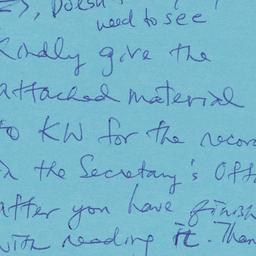 need to see
Kindly give the
attached material
to KW for the recor
in the Secretary's Off
after you have finish
with reading it. Than